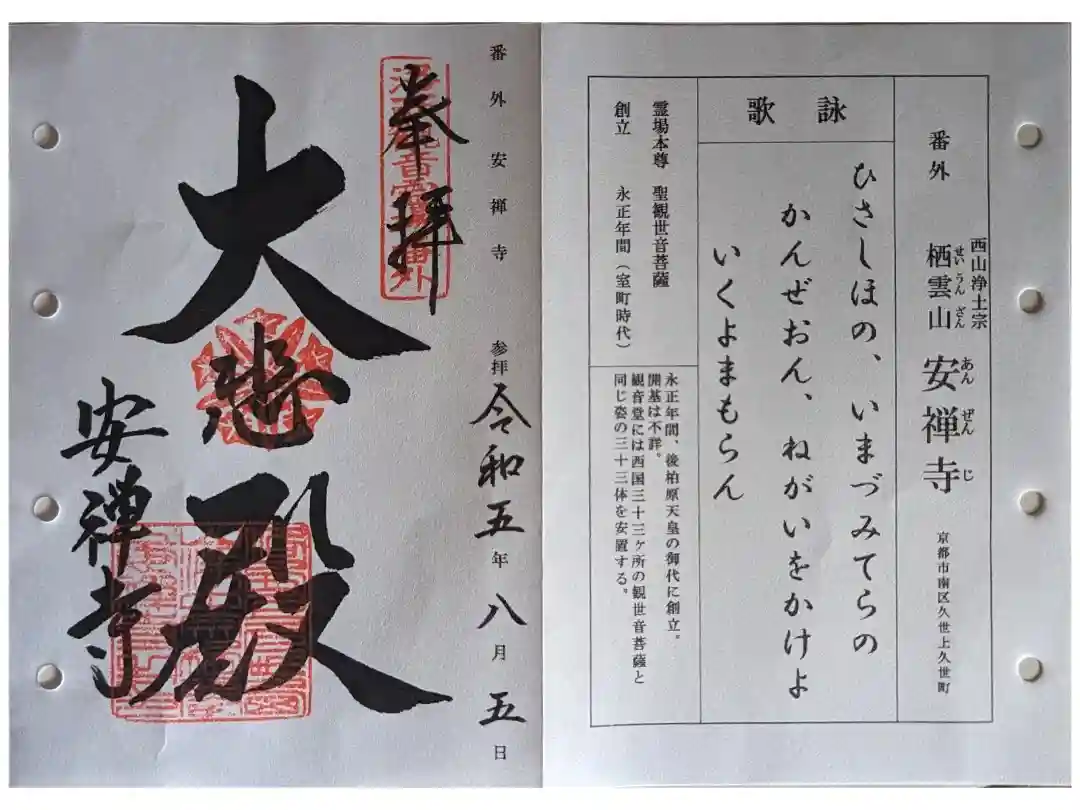 西山浄土宗
番外 栖雲山 安禅寺 京都市南区久世上久世町
せいうんざん あんぜんじ
詠歌
ひさしほの、いまづみてらの
かんぜおん、ねがいをかけよ
いくよまもらん
霊場本尊 聖観世音菩薩
創立 永正年間(室町時代)
永正年間、後柏原天皇の御代に創立。
開基は不詳。
観音堂には西国三十三ヶ所の観世音菩薩と
同じ姿の三十三体を安置する。
番外安禅寺 参拝 令和五年八月五日
奉拝
洛西観音霊場番外
大悲殿
安禅寺